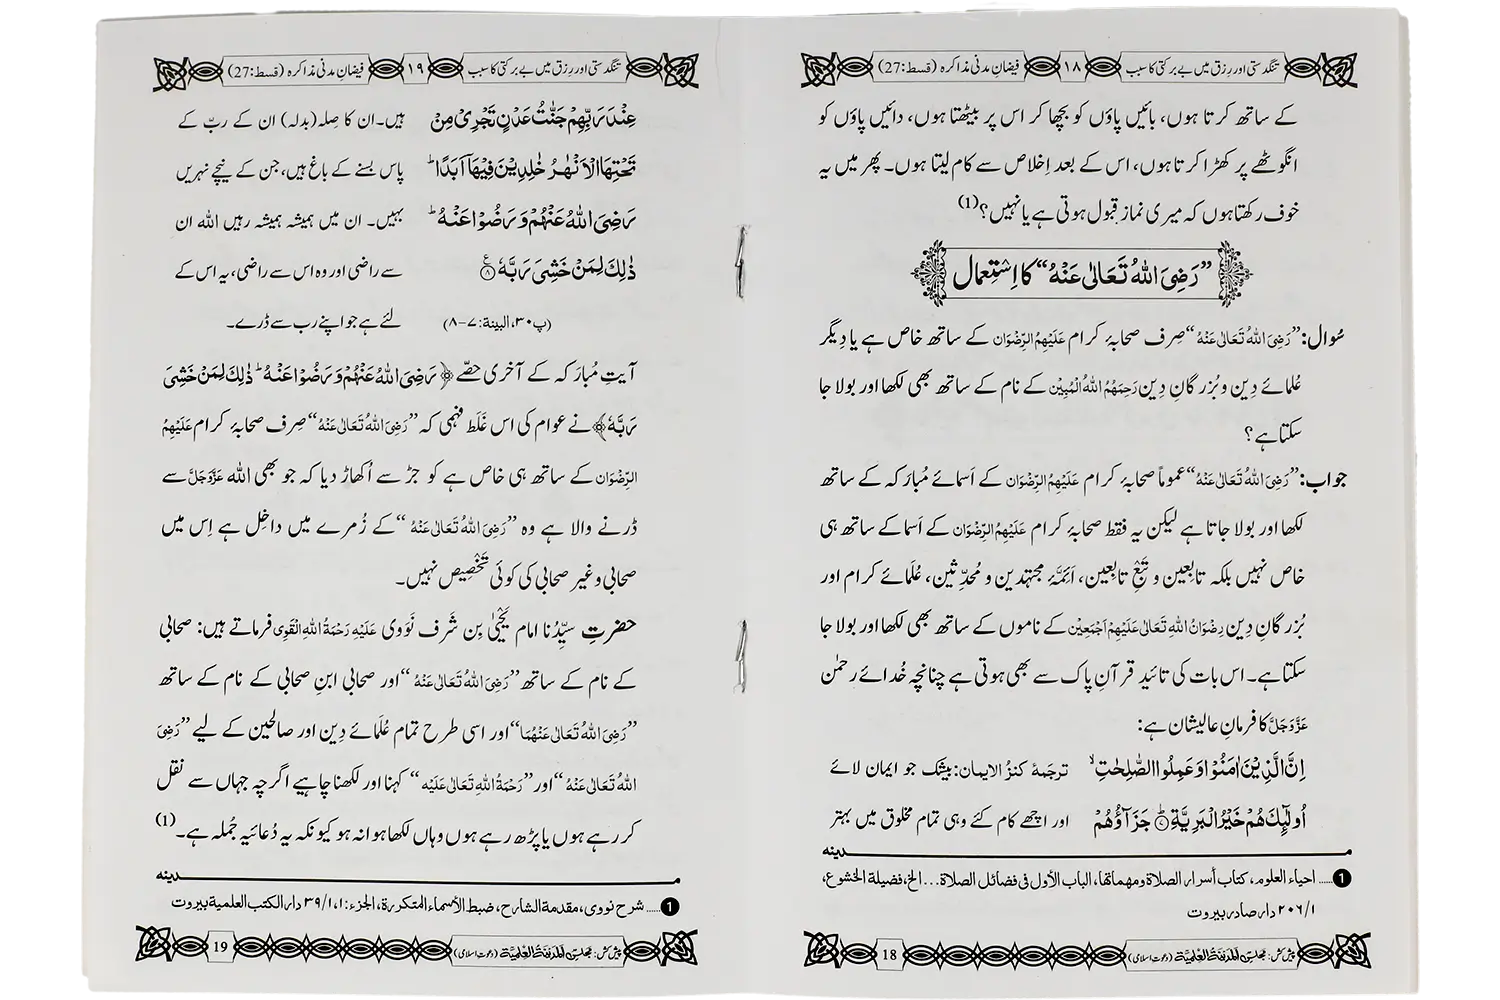 تنگدستی اور رِزق میں بے برکتی کا سبب ۱۸ فیضانِ مدنی مذاکرہ (قسط:27)
کے ساتھ کرتا ہوں، بائیں پاؤں کو بچھا کر اس پر بیٹھتا ہوں، دائیں پاؤں کو
انگوٹھے پر کھڑا کرتا ہوں، اس کے بعد اِخلاص سے کام لیتا ہوں۔ پھر میں یہ
خوف رکھتا ہوں کہ میری نماز قبول ہوتی ہے یا نہیں؟(1)
”رَضِیَ اللّٰہُ تَعَالٰی عَنْہُ“ کا اِسْتِعمال
سُوال: ”رَضِیَ اللّٰہُ تَعَالٰی عَنْہُ“ صِرف صحابۂ کرام عَلَیْہِمُ الرِّضْوَان کے ساتھ خاص ہے یا دِیگر
عُلمائے دِین و بُزرگانِ دِین رَحِمَہُمُ اللّٰہُ الْمُبِیْن کے نام کے ساتھ بھی لکھا اور بولا جا
سکتا ہے؟
جواب: ”رَضِیَ اللّٰہُ تَعَالٰی عَنْہُ“ عموماً صحابۂ کرام عَلَیْہِمُ الرِّضْوَان کے اَسمائے مُبارَکہ کے ساتھ
لکھا اور بولا جاتا ہے لیکن یہ فقط صحابۂ کرام عَلَیْہِمُ الرِّضْوَان کے اَسما کے ساتھ ہی
خاص نہیں بلکہ تابِعین و تَبْعِ تابِعین، اَئِمَّۂ مجتہدین و مُحدِّثین، عُلَمائے کرام اور
بُزرگانِ دِین رِضْوَانُ اللّٰہِ تَعَالٰی عَلَیْہِمْ اَجْمَعِیْن کے ناموں کے ساتھ بھی لکھا اور بولا جا
سکتا ہے۔ اس بات کی تائید قرآنِ پاک سے بھی ہوتی ہے چنانچہ خُدائے رحمٰن
عَزَّوَجَلَّ کا فرمانِ عالیشان ہے:
اِنَّ الَّذِیْنَ اٰمَنُوْا وَ عَمِلُوا الصّٰلِحٰتِۙ ترجمۂ کنزُ الایمان: بیشک جو ایمان لائے
اُولٰٓىٕكَ هُمْ خَیْرُ الْبَرِیَّةِؕ(۷) جَزَآؤُهُمْ اور اچھے کام کئے وہی تمام مخلوق میں بہتر
مـــدینہ
1 ..... احیاء العلوم، کتاب أسرار الصلاة ومهماتها، الباب الأول فی فضائل الصلاة...الخ، فضیلة الخشوع،
۲۰۶/۱ دار صادر بیروت
پیش کش: مجلس المدینۃ العلمیۃ (دعوت اسلامی) 18
تنگدستی اور رِزق میں بے برکتی کا سبب ۱۹ فیضانِ مدنی مذاکرہ (قسط:27)
عِنْدَ رَبِّهِمْ جَنّٰتُ عَدْنٍ تَجْرِیْ مِنْ ہیں۔ ان کا صِلہ(بدلہ) ان کے ربّ کے
تَحْتِهَا الْاَنْهٰرُ خٰلِدِیْنَ فِیْهَاۤ اَبَدًاؕ پاس بسنے کے باغ ہیں، جن کے نیچے نہریں
رَضِیَ اللّٰهُ عَنْهُمْ وَ رَضُوْا عَنْهُؕ بہیں۔ ان میں ہمیشہ ہمیشہ رہیں اللہ ان
ذٰلِكَ لِمَنْ خَشِیَ رَبَّهٗ۠(۸) سے راضی اور وہ اس سے راضی، یہ اس کے
(پ۳۰، البینۃ: ۷-۸) لئے ہے جو اپنے رب سے ڈرے۔
آیتِ مُبارَکہ کے آخری حصّے ﴿رَضِیَ اللّٰهُ عَنْهُمْ وَ رَضُوْا عَنْهُؕ ذٰلِكَ لِمَنْ خَشِیَ
رَبَّهٗ﴾ نے عوام کی اس غَلَط فہمی کہ ”رَضِیَ اللّٰہُ تَعَالٰی عَنْہُ“ صِرف صحابۂ کرام عَلَیْہِمُ
الرِّضْوَان کے ساتھ ہی خاص ہے کو جڑ سے اُکھاڑ دیا کہ جو بھی اللہ عَزَّوَجَلَّ سے
ڈرنے والا ہے وہ ”رَضِیَ اللّٰہُ تَعَالٰی عَنْہُ“ کے زُمرے میں داخِل ہے اِس میں
صحابی و غیر صحابی کی کوئی تَخْصِیص نہیں۔
حضرتِ سیِّدُنا امام یَحْییٰ بِن شَرف نَوَوی عَلَیْہِ رَحْمَۃُ اللّٰہِ الْقَوِی فرماتے ہیں: صحابی
کے نام کے ساتھ ”رَضِیَ اللّٰہُ تَعَالٰی عَنْہُ“ اور صحابی ابنِ صحابی کے نام کے ساتھ
”رَضِیَ اللّٰہُ تَعَالٰی عَنْہُمَا“ اور اسی طرح تمام عُلَمائے دِین اور صالحین کے لیے ”رَضِیَ
اللّٰہُ تَعَالٰی عَنْہُ“ اور ”رَحْمَۃُ اللّٰہِ تَعَالٰی عَلَیْہ“ کہنا اور لکھنا چاہیے اگرچہ جہاں سے نقل
کر رہے ہوں یا پڑھ رہے ہوں وہاں لکھا ہوا نہ ہو کیونکہ یہ دُعائیہ جُملہ ہے۔(1)
مـــدینہ
1 ..... شرح نووی، مقدمة الشارح، ضبط الأسماء المتکررة، الجزء:۱، ۳۹/۱ دار الکتب العلمیة بیروت
پیش کش: مجلس المدینۃ العلمیۃ (دعوت اسلامی) 19